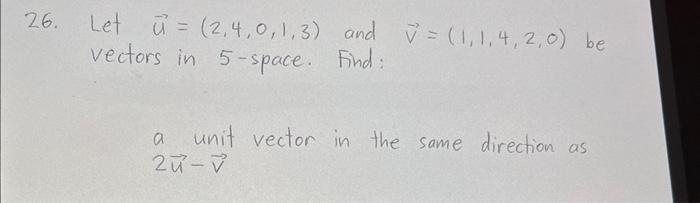 26. Let u⃗ = (2,4,0,1,3) and v⃗ = (1,1,4,2,0) be
vectors in 5-space. Find:
a unit vector in the same direction as
2u⃗ - v⃗